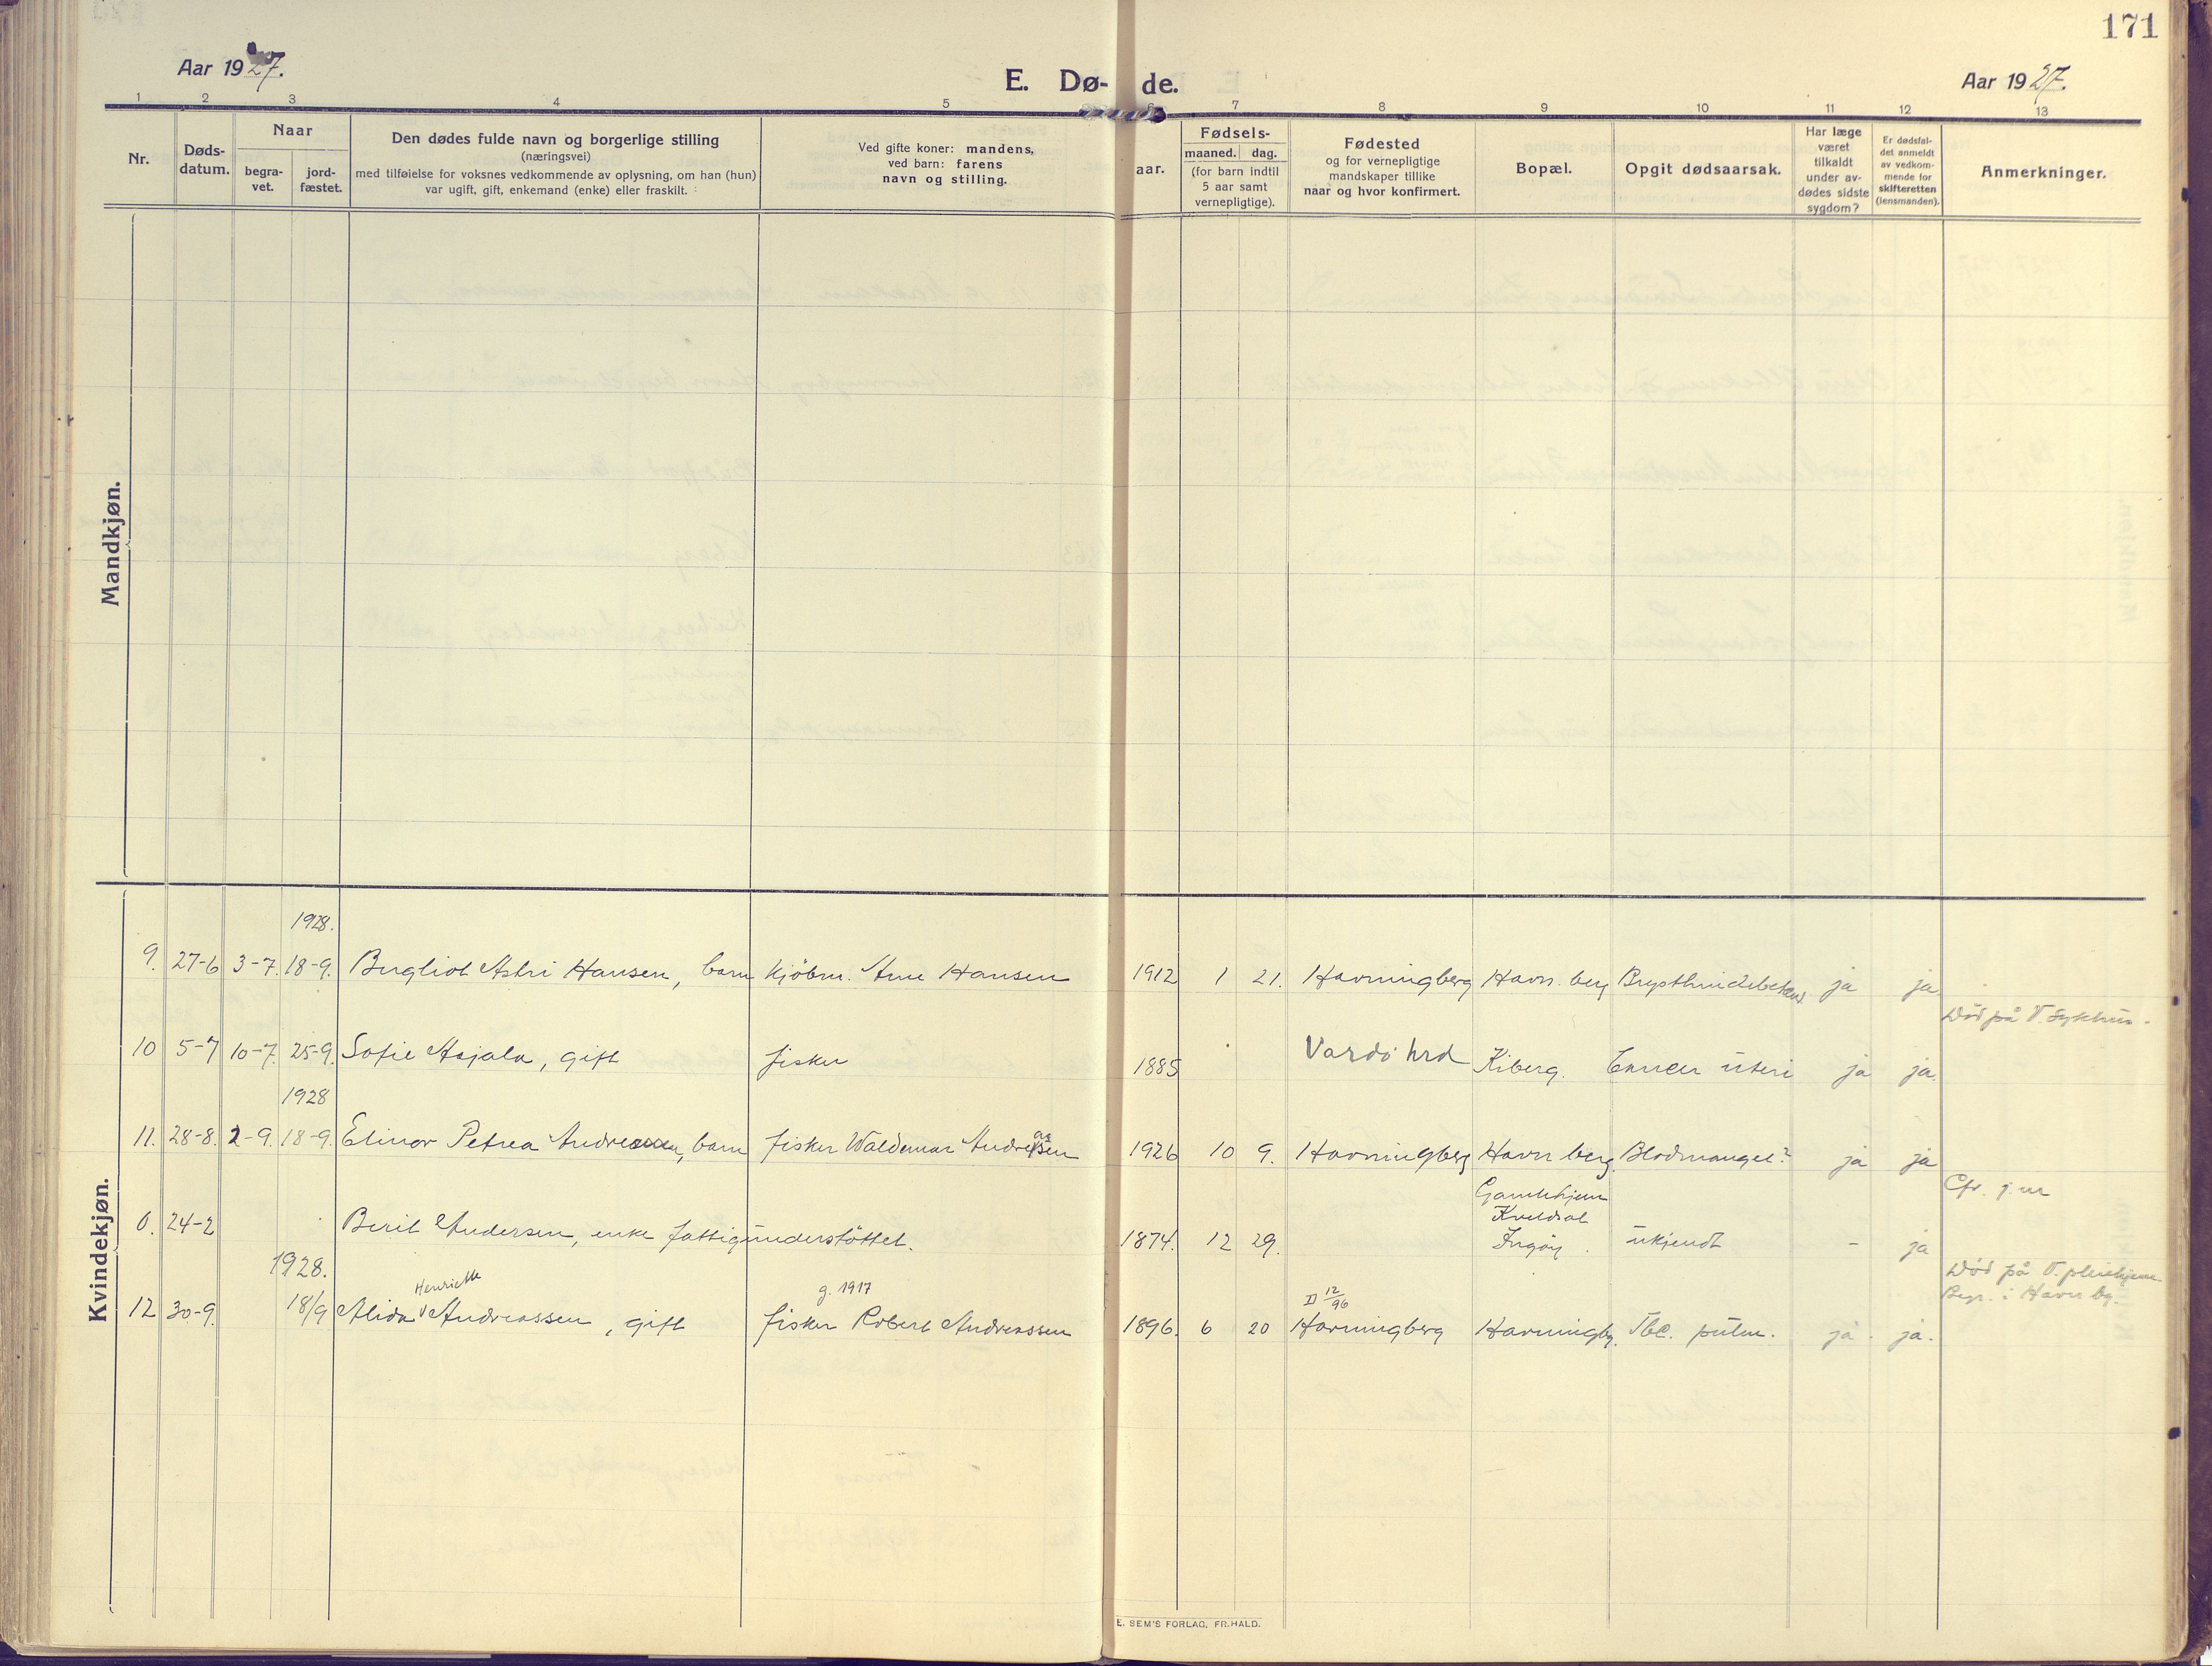 171
Aar 1927.
E. Dø- de.
Aar 1927.
1 2 3 4 5 6 7 8 9 10 11 12 13
Nr.
Døds-
datum.
Naar
begra-
vet.
jord-
fæstet.
Den dødes fulde navn og borgerlige stilling
(næringsvei)
med tilføielse for voksnes vedkommende av oplysning, om han (hun)
var ugift, gift, enkemand (enke) eller fraskilt.
Ved gifte koner: mandens,
ved barn: farens
navn og stilling.
aar.
Fødsels-
maaned. dag.
(for barn indtil
5 aar samt
vernepligtige).
Fødested
og for vernepligtige
mandskaper tillike
naar og hvor konfirmert.
Bopæl.
Opgit dødsaarsak.
Har læge
været
tilkaldt
under av-
dødes sidste
sygdom?
Er dødsfal-
det anmeldt
av vedkom-
mende for
skifteretten
(lensmanden).
Anmerkninger.
Mandkjøn.
Kvindekjøn.
1928.
9. 27-6 3-7. 18-9. Bergliot Astri Hansen, barn kjöbm. Arne Hansen 1912 1 21. Havningberg Havn. berg Brysthindebetend ja ja.
Död på V. Sykehus.
10 5-7 10-7. 25-9. Sofie Asjala, gift fisker 1885 Vardö hrd Kiberg. Cancer uteri ja ja.
1928
11. 28-8. 2-9. 18-9. Elinor Petrea Andreassen, barn fisker Waldemar Andreasen 1926 10 9. Havningberg Havn berg Blodmangel? ja ja
Cfr. j.nr
Gamlehjem
Kveldsol
0. 24-2 Berit Andersen, enke fattigunderstöttet. 1874. 12 29. Ingöy. ukjendt - ja
1928.
Henriette
g. 1917
D 12/96
Död på V. pleiehjem
Begr. i Havn bg.
12 30-9. 18/9 Alida Andreassen, gift fisker Robert Andreassen 1896. 6 20 Havningberg Havningbg. Tbc. pulm. ja. ja.
E. SEM'S FORLAG, FR.HALD.